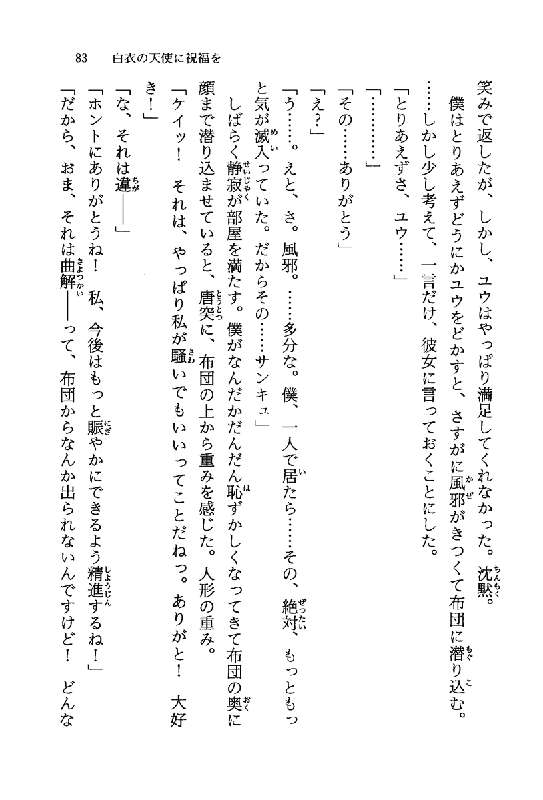 83　白衣の天使に祝福を
笑みで返したが、しかし、ユウはやっぱり満足してくれなかった。沈黙。
僕はとりあえずどうにかユウをどかすと、さすがに風邪がきつくて布団に潜り込む。
……しかし少し考えて、一言だけ、彼女に言っておくことにした。
「とりあえずさ、ユウ……」
「…………」
「その……ありがとう」
「え？」
「う……。えと、さ。風邪。……多分な。僕、一人で居たら……その、絶対、もっともっ
と気が滅入っていた。だからその……サンキュ」
しばらく静寂が部屋を満たす。僕がなんだかだんだん恥ずかしくなってきて布団の奥に
顔まで潜り込ませていると、唐突に、布団の上から重みを感じた。人形の重み。
「ケイッ！　それは、やっぱり私が騒いでもいいってことだねっ。ありがと！　大好
き！」
「な、それは違――」
「ホントにありがとうね！　私、今後はもっと賑やかにできるよう精進するね！」
「だから、おま、それは曲解――って、布団からなんか出られないんですけど！　どんな